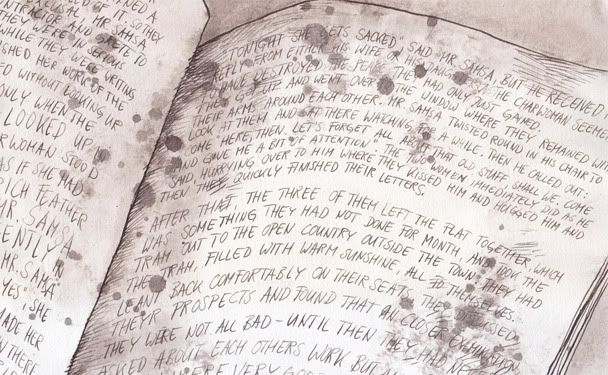 OF IT, SO THEY
EXCUSAL, MR. SAMSA
AND GRETE TO
THEY WERE IN SERIOUS
WHILE THEY WERE WRITING
HER WORK OF THE
WITHOUT LOOKING UP
ONLY WHEN THE
LOOKED UP
STOOD
AS IF SHE HAD
FEATHER
MR. SAMSA
GENTLY IN
MR. SAMSA
YES", SHE
MADE HER
THERE
"TONIGHT SHE GETS SACKED" SAID MR. SAMSA, BUT HE RECEIVED
REPLY FROM EITHER HIS WIFE OR HIS DAUGHTER AS THE CHARWOMAN SEEMED
HAVE DESTROYED THE PEACE THEY HAD ONLY JUST GAINED.
THEY GOT UP AND WENT OVER TO THE WINDOW WHERE THEY REMAINED WITH
THEIR ARMS AROUND EACH OTHER. MR. SAMSA TWISTED ROUND IN HIS CHAIR TO
LOOK AT THEM AND SAT THERE WATCHING FOR A WHILE. THEN HE CALLED OUT:
"COME HERE, THEN. LET'S FORGET ALL ABOUT THAT OLD STUFF, SHALL WE. COME
AND GIVE ME A BIT OF ATTENTION". THE TWO WOMEN IMMEDIATELY DID AS HE
SAID, HURRYING OVER TO HIM WHERE THEY KISSED HIM AND HUGGED HIM AND
THEN THEY QUICKLY FINISHED THEIR LETTERS.
AFTER THAT, THE THREE OF THEM LEFT THE FLAT TOGETHER, WHICH
WAS SOMETHING THEY HAD NOT DONE FOR MONTH, AND TOOK THE
TRAM OUT TO THE OPEN COUNTRY OUTSIDE THE TOWN. THEY HAD
THE TRAM, FILLED WITH WARM SUNSHINE, ALL TO THEMSELVES.
LEANT BACK COMFORTABLY ON THEIR SEATS, THEY DISCUSSED
THEIR PROSPECTS AND FOUND THAT ON CLOSER EXAMINATION
THEY WERE NOT ALL BAD - UNTIL THEN THEY HAD NEVER
ASKED ABOUT EACH OTHERS WORK BUT ALL
WERE VERY GOOD